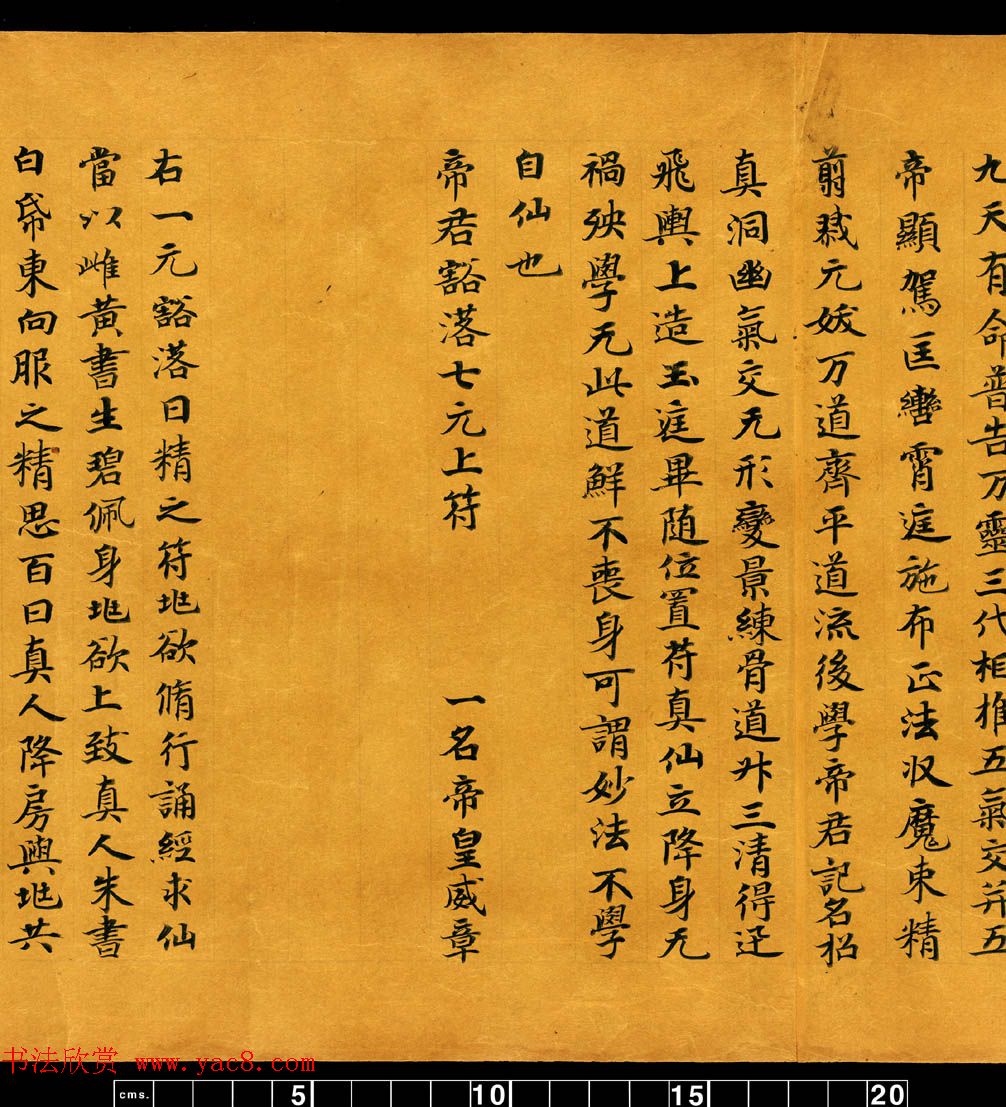 九天有命普告万靈三代相推五氣交并五
帝顯駕匡轡霄庭施布正法収魔束精
翦裁元妭万道齊平道流後學帝君記名招
真洞幽氣交无形變景練骨道升三清得
飛輿上造玉庭畢随位置苻真仙立降身无
禍殃學无此道鮮不喪身可謂妙法不學
自仙也
帝君豁落七元上符 一名帝皇威章
右一元豁落日精之符兆欲脩行誦經求仙
當以雌黄書生碧佩身兆欲上致真人朱書
白帋東向服之精思百日真人降房與兆共
书法欣赏 www.yac8.com
cms. 5 10 15 20